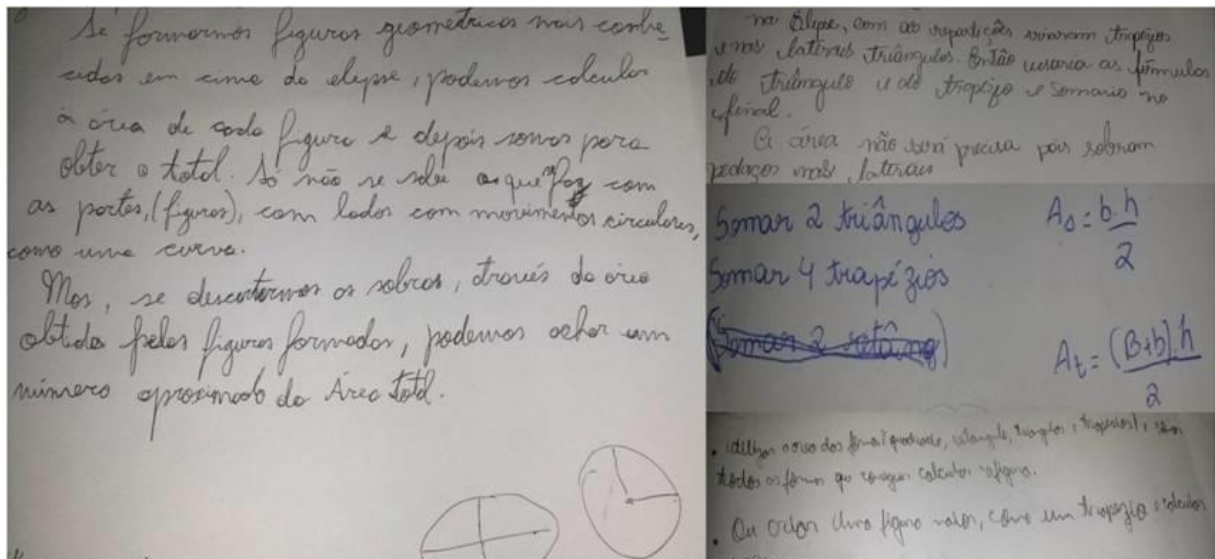 Se formarmos figuras geométricas mais conhe
cidas em cima da elipse, podemos calcular
a área de cada figura e depois somar para
obter o total. Só não se sabe o que faz com
as partes, (figuras), com lados com movimentos circulares,
como uma curva.
Mas, se descartarmos as sobras, através da área
obtida pelas figuras formadas, podemos achar um
número aproximado da Área total.
na Elipse, com as repartições viraram trapézios
e nas laterais triângulos. Então usaria as fórmulas
do triângulo e do trapézio e somaria no
final.
A área não será precisa pois sobram
pedaços nas laterais
Somar 2 triângulos
A△ = b.h
2
Somar 4 trapézios
(Somar 2 retâng)
At = (B+b).h
2
• utilizar a área das formas (quadrado, retângulo, triângulo, trapézios),
todas as formas que consigam calcular a figura.
• Ou criar uma figura maior, como um trapézio e calcular